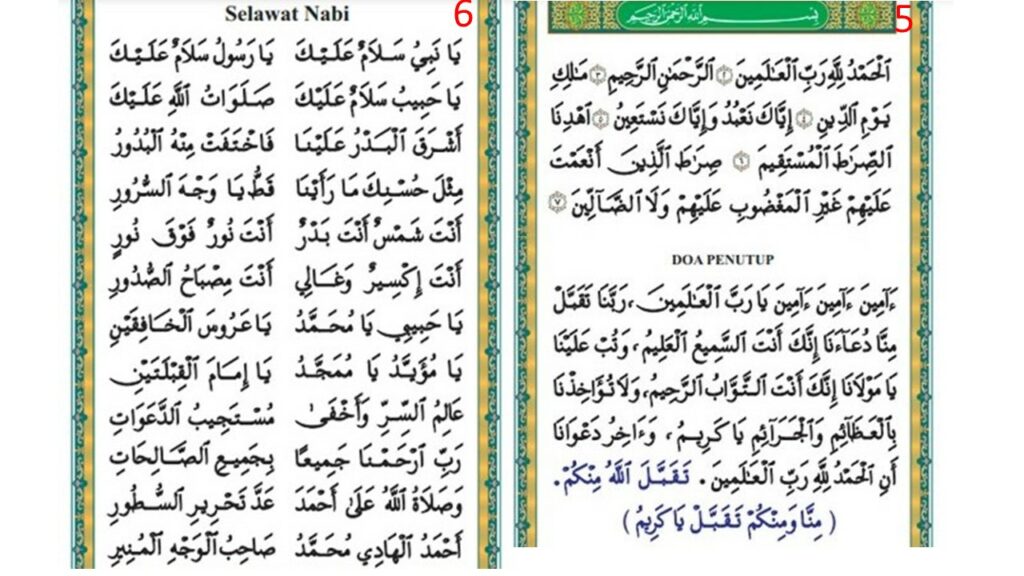 Selawat Nabi
6
يَا نَبِيُ سَلَامٌ عَلَيْكَ يَا رَسُولُ سَلَامٌ عَلَيْكَ
يَا حَبِيبُ سَلَامٌ عَلَيْكَ صَلَوَاتُ اللَّهِ عَلَيْكَ
أَشْرَقَ الْبَدْرُ عَلَيْنَا فَاخْتَفَتْ مِنْهُ الْبُدُورُ
مِثْلَ حُسْنِكَ مَا رَأَيْنَا قَطُّ يَا وَجْهَ السُّرُورِ
أَنْتَ شَمْسٌ أَنْتَ بَدْرٌ أَنْتَ نُورٌ فَوْقَ نُورٍ
أَنْتَ إِكْسِيرٌ وَغَالِي أَنْتَ مِصْبَاحُ الصُّدُورِ
يَا حَبِيبِي يَا مُحَمَّدُ يَا عَرُوسَ الْخَافِقَيْنِ
يَا مُؤَيَّدُ يَا مُمَجَّدُ يَا إِمَامَ الْقِبْلَتَيْنِ
عَالِمُ السِّرِّ وَأَخْفَى مُسْتَجِيبُ الدَّعَوَاتِ
رَبِّ ارْحَمْنَا جَمِيعًا بِجَمِيعِ الصَّالِحَاتِ
وَصَلَاةُ اللَّهُ عَلَى أَحْمَدَ عَدَّ تَحْرِيرِ السُّطُورِ
أَحْمَدُ الْهَادِي مُحَمَّدُ صَاحِبُ الْوَجْهِ الْمُنِيرِ
بِسْمِ اللَّهِ الرَّحْمَٰنِ الرَّحِيمِ
5
الْحَمْدُ لِلَّهِ رَبِّ الْعَـٰلَمِينَ ٢ الرَّحْمَٰنِ الرَّحِيمِ ٣ مَـٰلِكِ
يَوْمِ الدِّينِ ٤ إِيَّاكَ نَعْبُدُ وَإِيَّاكَ نَسْتَعِينُ ٥ اهْدِنَا
الصِّرَاطَ الْمُسْتَقِيمَ ٦ صِرَاطَ الَّذِينَ أَنْعَمْتَ
عَلَيْهِمْ غَيْرِ الْمَغْضُوبِ عَلَيْهِمْ وَلَا الضَّآلِّينَ ٧
DOA PENUTUP
ءَامِينَ ءَامِينَ ءَامِينَ يَا رَبَّ الْعَـٰلَمِينَ، رَبَّنَا تَقَبَّلْ
مِنَّا دُعَآءَنَا إِنَّكَ أَنْتَ السَّمِيعُ الْعَلِيمُ، وَتُبْ عَلَيْنَا
يَا مَوْلَانَا إِنَّكَ أَنْتَ التَّوَّابُ الرَّحِيمُ، وَلَا تُؤَاخِذْنَا
بِالْعَظَآئِمِ وَالْجَرَآئِمِ يَا كَرِيمُ، وَءَاخِرُ دَعْوَانَا
أَنِ الْحَمْدُ لِلَّهِ رَبِّ الْعَـٰلَمِينَ. تَقَبَّلَ اللَّهُ مِنْكُمْ.
( مِنَّا وَمِنْكُمْ تَقَبَّلْ يَا كَرِيمُ )